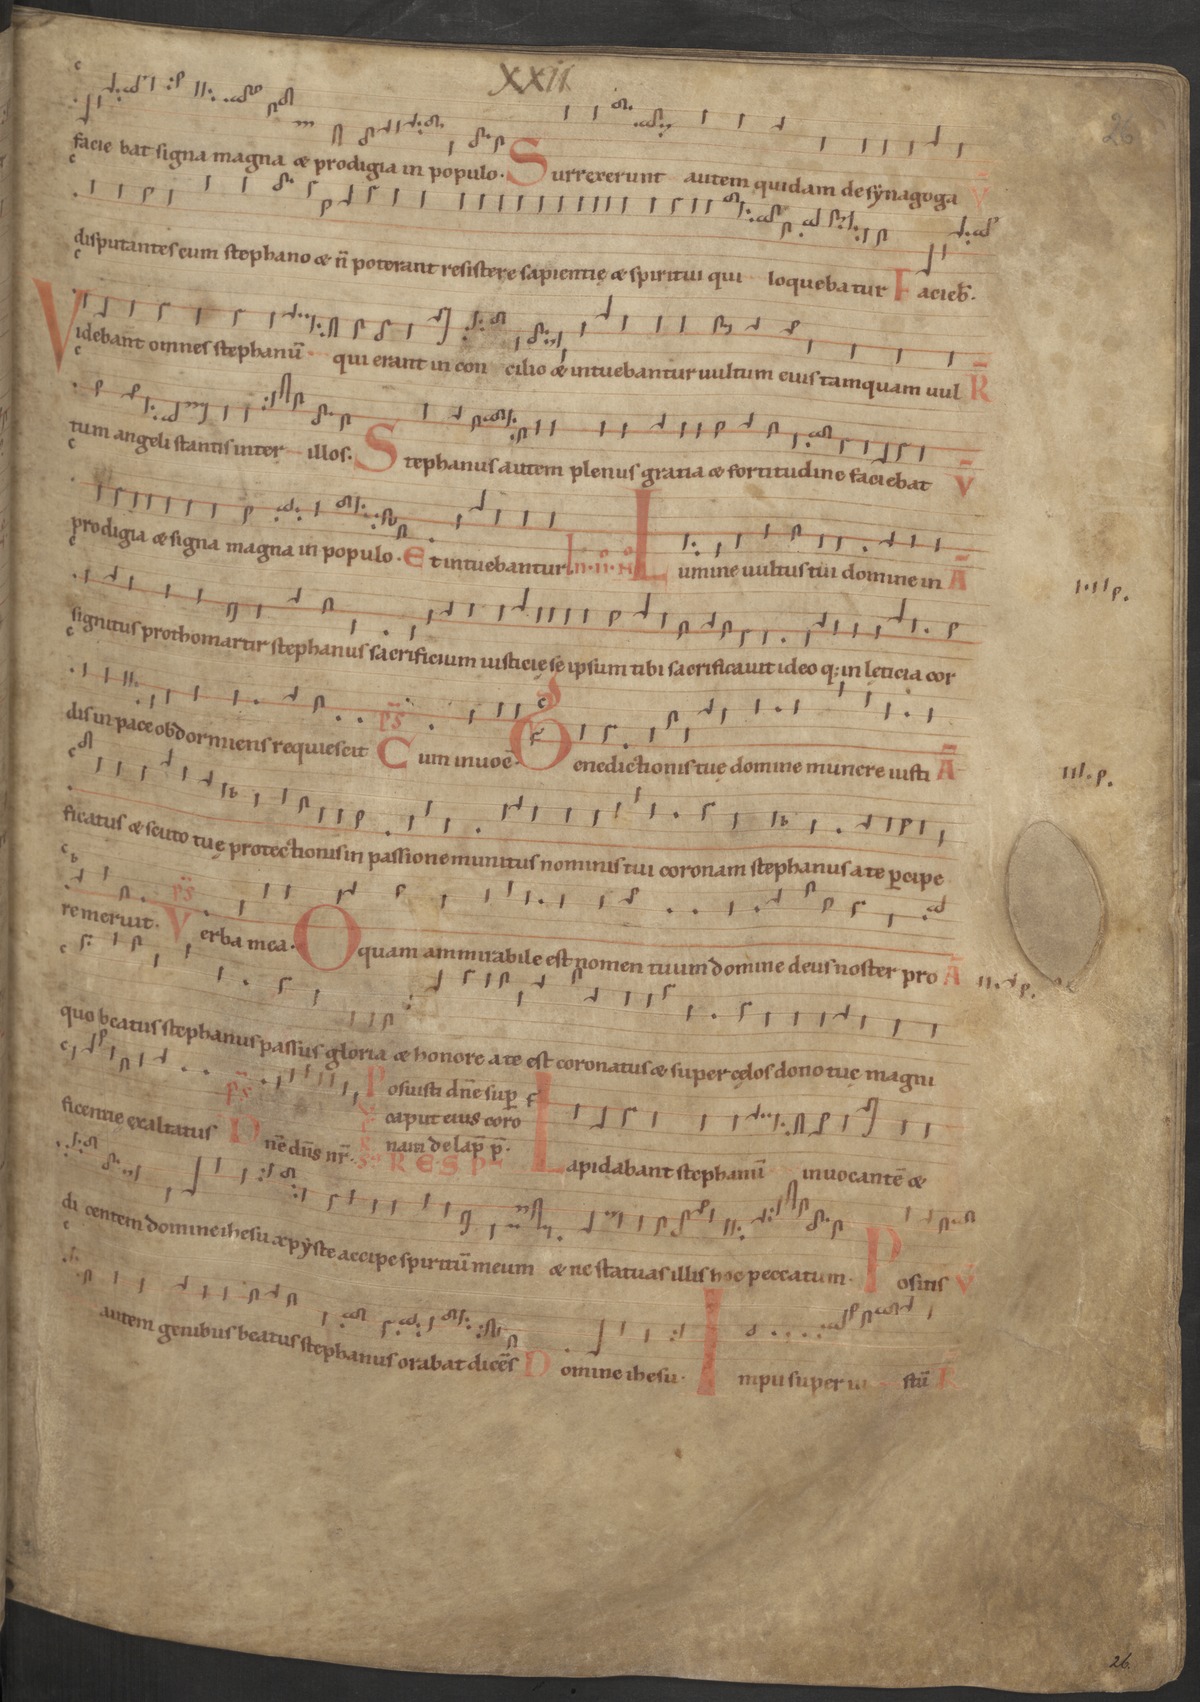 XXII
26
facie bat signa magna & prodigia in populo. Surrexerunt autem quidam de sẏnagoga V̄
disputantes cum stephano & ñ poterant resistere sapientię & spiritui qui loquebatur Facieb̄.
Videbant omnes stephanū qui erant in con cilio & intuebantur uultum eius tamquam uul R̄
tum angeli stantis inter illos. Stephanus autem plenus gratia & fortitudine faciebat V̄
prodigia & signa magna in populo. Et intuebantur. In .ii. No Lumine uultus tui domine in Ā
signitus prothomartir stephanus sacrificium iusticie se ipsum tibi sacrificauit ideo q; in leticia cor
dis in pace obdormiens requiescit ps̄ Cum inuoc̄. Benedictionis tue domine munere iusti Ā
ficatus & scuto tuę protectionis in passione munitus nominis tui coronam stephanus a te p̲cipe
re meruit. ps̄ Verba mea. O quam ammirabile est nomen tuum domine deus noster pro Ā
quo beatus stephanus passus gloria & honore a te est coronatus & super celos dono tue magni
ficentie exaltatus ps̄ Dñe dñs nr̄.
Posuisti dñe sup̲
caput eius coro
nam de lap̄ p̄.
RESP
Lapidabant stephanū inuocantē &
di centem domine ihesu xp̄ẏste accipe spiritū meum & ne statuas illis hoc peccatum. Positis V̄
autem genibus beatus stephanus orabat dicēs Domine ihesu. Impii super iu stū R̄
26.